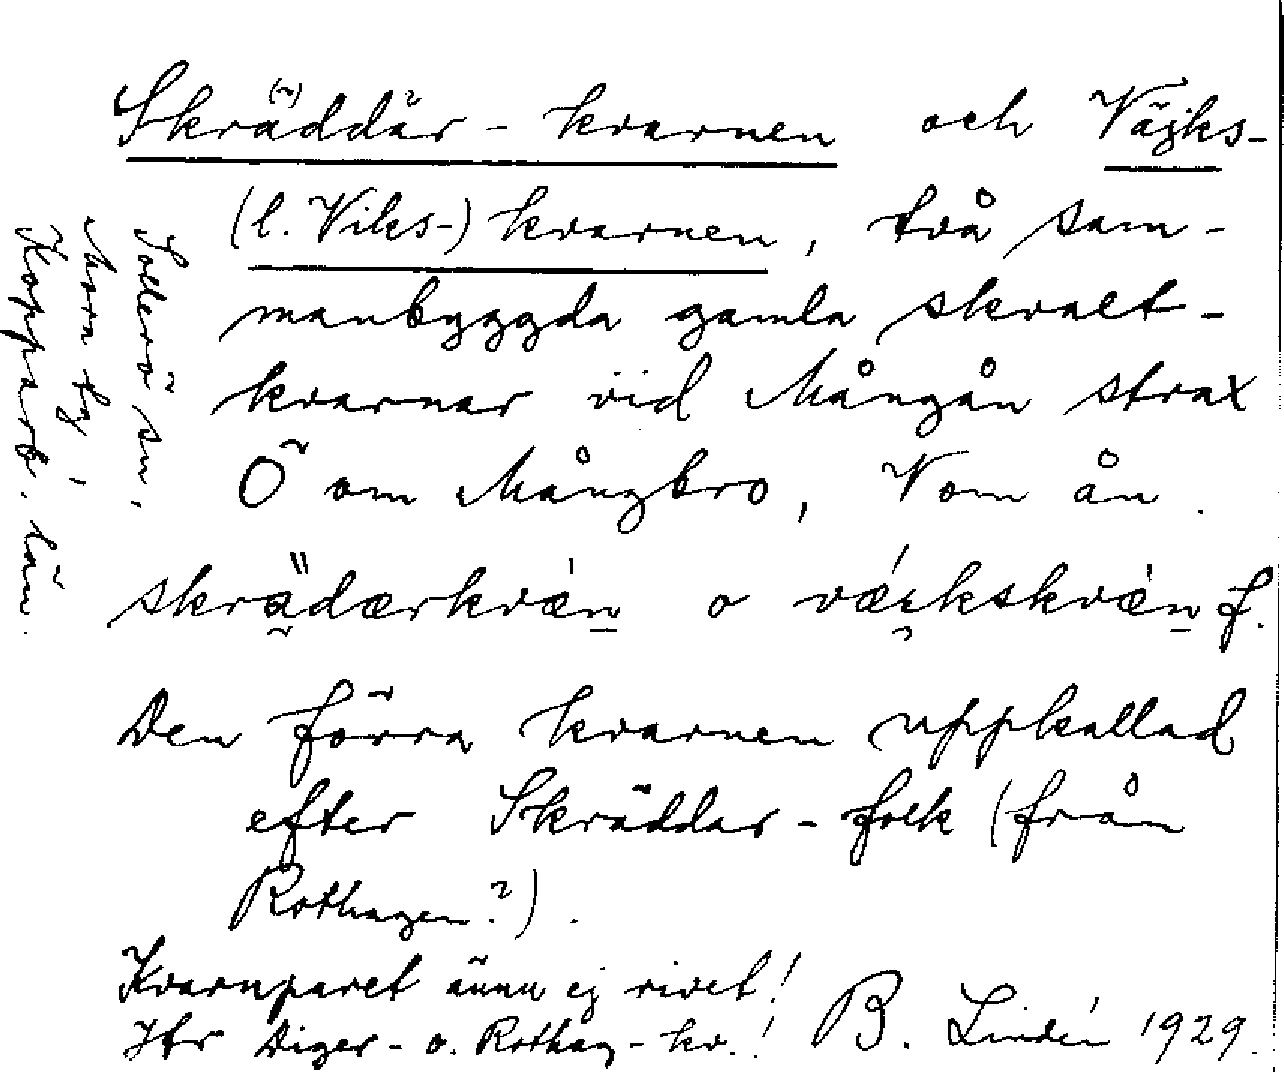 Skräddär-kvarnen och Väjks-
(l. Viks-) kvarnen, två sam-
manbyggda gamla skvalt-
kvarnar vid Mångån strax
Ö om Mångbro, N om ån.
skrädærkvæn o væjkskvæn f.
Den förra kvarnen uppkallad
efter Skräddar-folk (från
Rothagen?).
Kvarnparet ännu ej rivet!
Jfr Diger- o. Rothag-kv.!
B. Lindén 1929.
Sollerö sn,
Mora tg,
Kopparb. län.